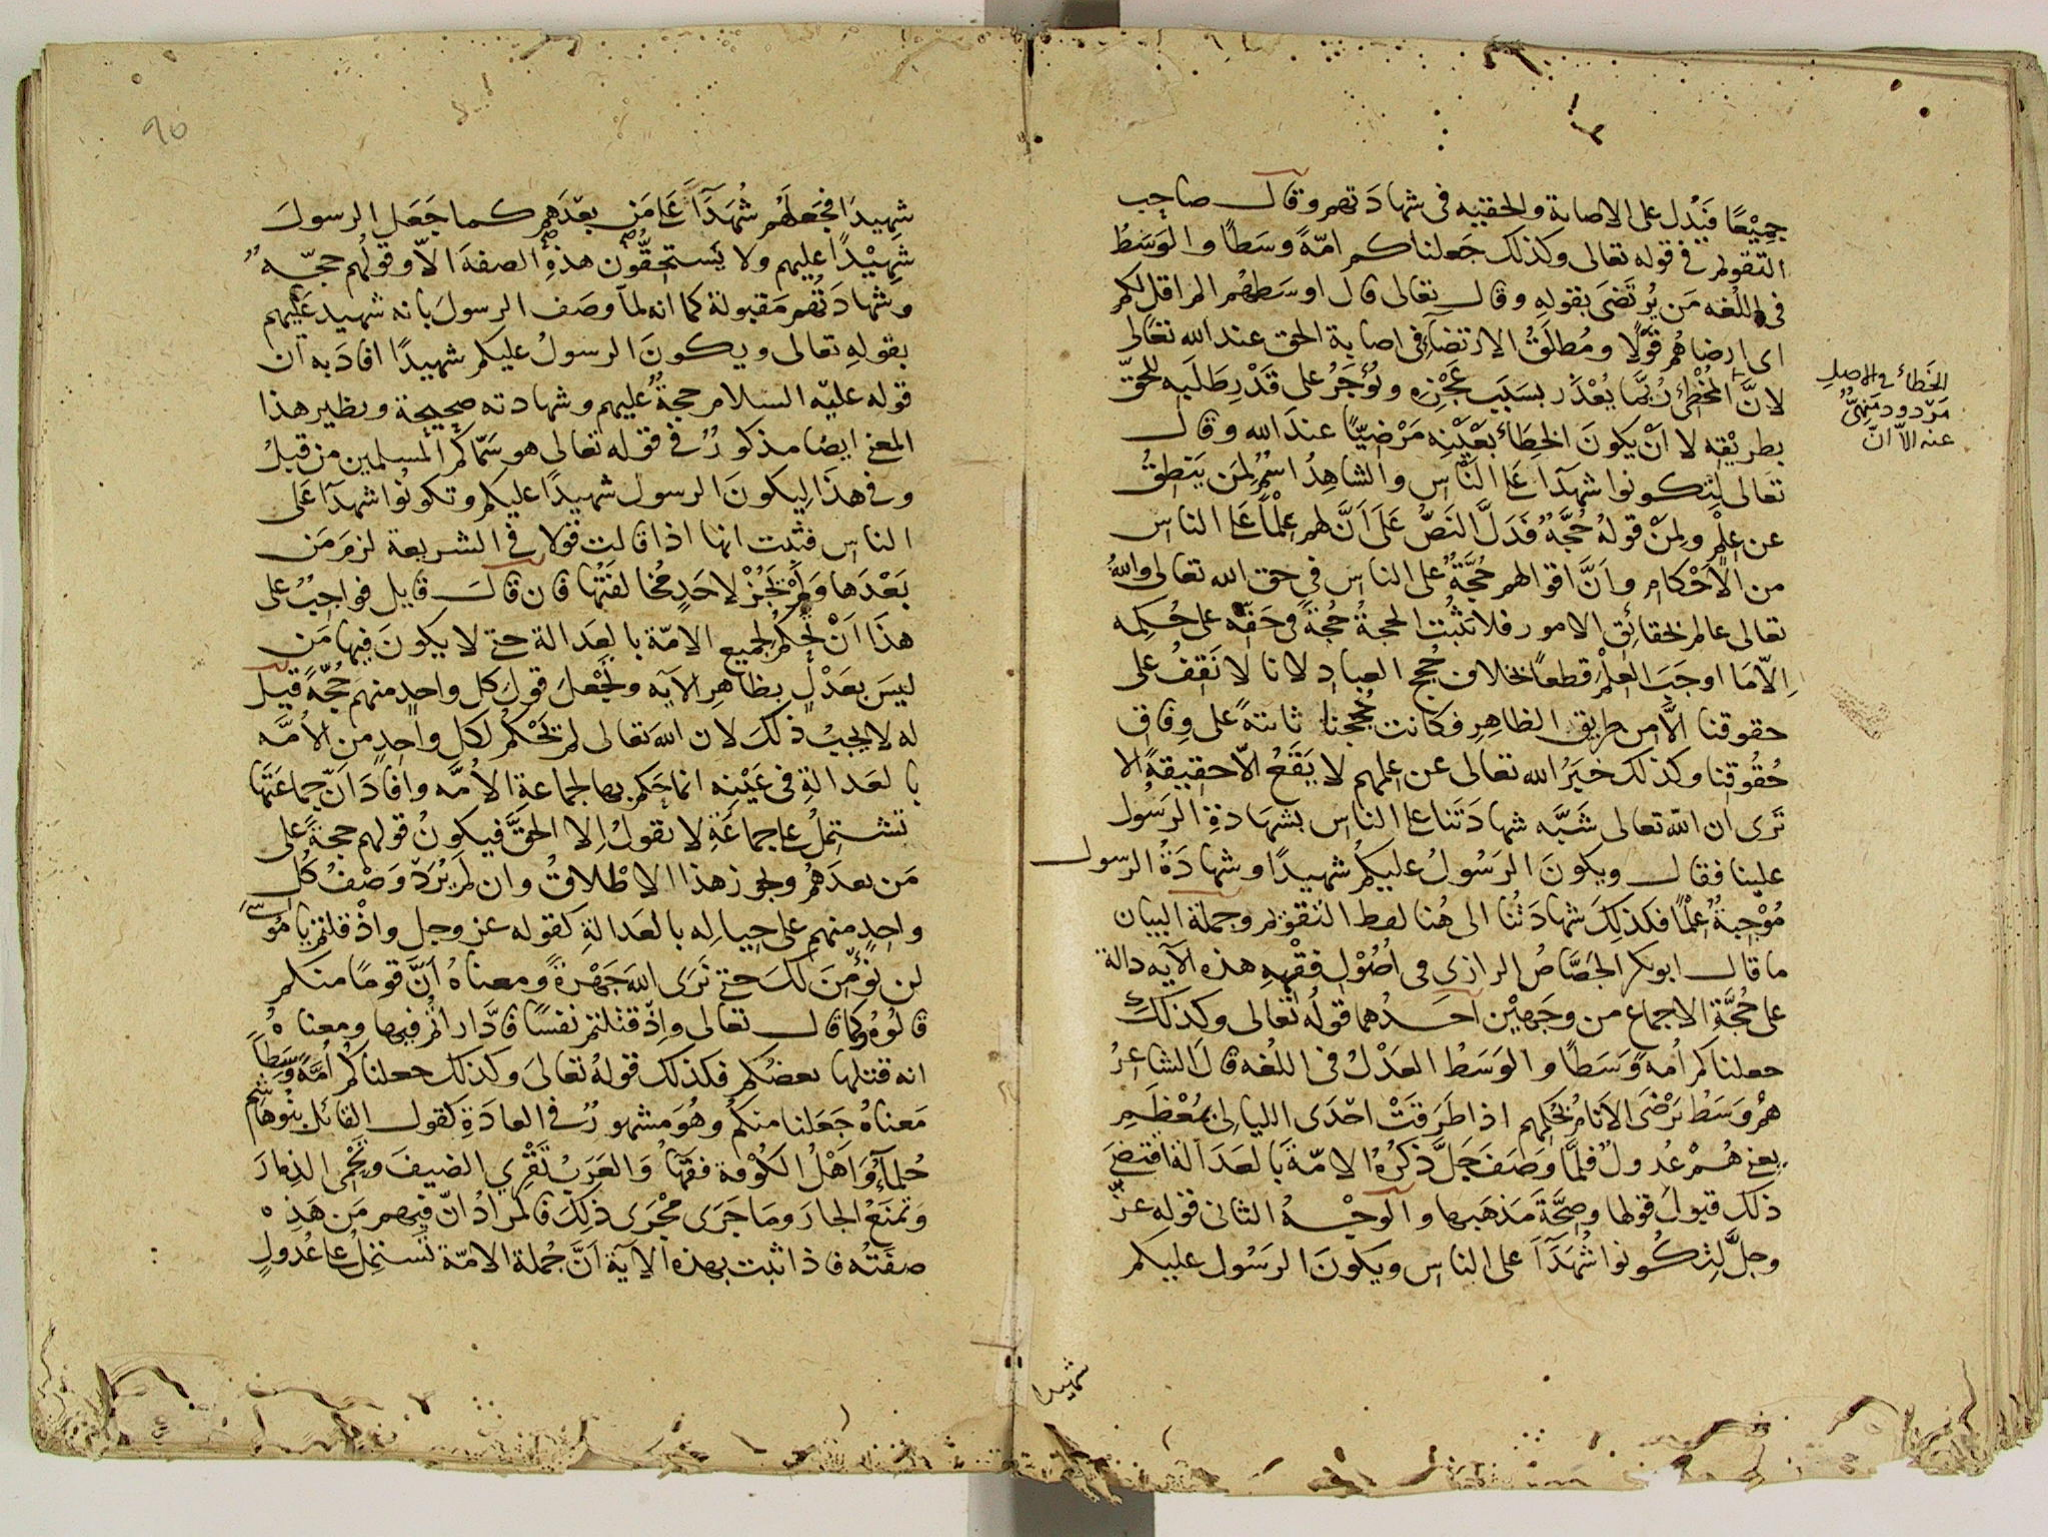 جميعًا فيدل على الاصابة والحقيه فى شهادتهم وقال صاحب
التقويم فى قوله تعالى وكذلك جعلناكم امّةً وسَطًا والوَسَطُ
فى اللغه مَن يُرتَضىَ بقولِهِ وقال تعالى قال اوسَطهُم الم اقل لكم
اى ارضاهُم قَوْلًا ومُطلَقُ الارتضآءِ فى اصابة الحق عند الله تعالى
لانَّ المُخْطِئَ رُبَّما يُعْذَر بسَبَب عَجْزِهِ ويُؤجَرُ على قَدْرِ طَلَبِه للحقّ
بطريْقِه لا اَنْ يكونَ الخِطَأ بعَيْنِهِ مَرْضيًّا عندَ الله وقال
تعالى لِتكونوا شهدَآءَ على النَّاس والشاهِدُ اسْمٌ لِمَن يَنطِقُ
عن عِلْمٍ ولِمَنْ قولهُ حُجَّةٌ فَدَلَّ النَصُّ عَلَى اَنَّ لهم عِلْمًا عَلى الناس
من الاَحْكامِ واَنَّ اقوالهم حُجَّةٌ على الناس فى حق الله تعالى واللهُ
تعالى عالم بحقائِق الامور فلا تثبت الحجةُ حُجةً فى حَقّه على حُكمِه
اِلّا مَا اوجَبَ العِلْمَ قطعًا بخلاف حُجج العباد لانا لا نَقِفُ على
حقوقنا الَّا من طريق الظاهِرِ فكانت حُججنا ثابتةً على وِفاقِ
حُقُوقِنا وكذلك خبَرُ الله تعالى عن علمهم لا يَقَعُ الّا حقيقةً الا
تَرى ان الله تعالى شَبَّه شهادَتَنا على الناس بشَهادَةِ الرَسُول
علَينا فقال ويكونَ الرَسُولُ عليكُم شهيدًا وشهادَةُ الرّسول
مُوْجِبةٌ عِلْمًا فكذلِكَ شهادَتُنا الى هُنا لفط التقويم وجملة البيان
ما قال ابو بكر الجَصَّاصُ الرازى فى اُصُوْلِ فِقْهِهِ هذه الآيه دالة
على حُجَّةِ الاجماع من وجَهيْن اَحَدُهما قولُه تعالى وكذلك
جعلناكم اُمه وَسَطًا والوَسَطُ العَدْلُ فى اللغه قالَ الشاعِرُ
همُ وَسَطٌ تَرْضَى الاَنامُ بحُكمِهم اذا طَرَقَتْ احْدَى الليالِى بمُعْظَمِ
يعنى هُمْ عُدولٌ فلمَّا وصَفَ جَلَّ ذِكرُهُ الامّةَ بالعَدَالَة اقتضَى
ذلك قبولَ قولها وصِحَّةَ مَذهَبِها والوجْهُ الثانى قوله عزّ
وجلَّ لِتكُونوا شُهَدَآءَ على الناس ويكونَ الرَسُول عليكم
الخطأ فى الاصل
مَرْدود مَنهىٌّ
عنه الاّ انّ
شهيدا
٩٥
شهِيدًا فجَعَلَهُم شُهَدَآءَ عَلى مَن بعْدَهم كما جَعَل الرسولَ
شهِيْدًا عليهم ولا يَستحِقُّون هذهِ الصفةَ الاّ وقولُهم حجّه
وشهادَتُهم مَقبولة كما انه لمّا وصَف الرسولَ بانه شهيد عَليهم
بقولِهِ تعالى ويكونَ الرسولُ عليكم شهيدًا افادَ به ان
قوله عليْه السلام حجةٌ عليهم وشهادته صحيحة ونظير هذا
المعنى ايضًا مذكورٌ فى قوله تعالى هو سَمّاكم المسلمين من قبلُ
وفى هذَا لِيكونَ الرسول شهيدًا عليكم وتكونُوا شهدَآءَ على
الناس فثبت انها اذا قالت قولا فى الشريعة لزمَ مَن
بَعْدَها وَلَمْ يَجُزْ لاحَدٍ مُخالفَتُها فان قالَ قايل فواجِبٌ على
هذَا اَنْ يُحكمَ لجميع الامّة بالعَدالة حتى لا يكونَ فيها مَن
ليسَ بعَدْلٍ بظاهِرِ الآيه ونَجْعلَ قولَ كل واحِدٍ منهُم حُجّةً قيل
له لا يجبُ ذلكَ لان الله تعالى لم يَحْكمْ لكل واحِدٍ من الاُمَّه
بالعَدالَةِ فى عَيْنِه انما حَكم بها لجماعةِ الاُمَّه وافادَ اَنَّ جماعَتَها
تشتمِلُ على جماعَةٍ لا تقولُ اِلا الحقَّ فيكونُ قولهم حجةً على
مَن بعدَهُم ويجوز هذا الاطْلاقُ وان لَم يُرَدْ وَصْفُ كلّ
واحِدٍ منهم على حِيالِه بالعَدالةِ كقوله عز وجل واذْ قلتم يا موسى
لن نؤْمِنَ لكَ حتى نَرَى اللهَ جَهْرةً ومعناهُ اَنَّ قومًا منكم
قالُوهُ وكما قال تعالى واِذْ قتلتم نفسًا فادَّارأتم فيها ومعناهُ
انه قتلها بعضُكم فكذلك قولهُ تعالىَ وكذلك جعلناكم اُمَّةً وَسَطًا
مَعناهُ جَعَلنا منكم وهُوَ مشهورٌ فى العادَةِ كقول القائل بَنُو هاشم
حُلمآءُ وَاَهْلُ الكُوْفة فقَهآءُ والعَرَبُ تَقْرِي الضيفَ وتَحْمِى الذِمارَ
وتمنَعُ الجارَ ومَا جَرَى مَجْرَى ذلِكَ فالمرادُ انّ فيهم مَن هَذِهِ
صفَتُه فاذا ثبت بهذه الآيَة اَنَّ جُملة الامّة تشتمِلُ على عُدولٍ